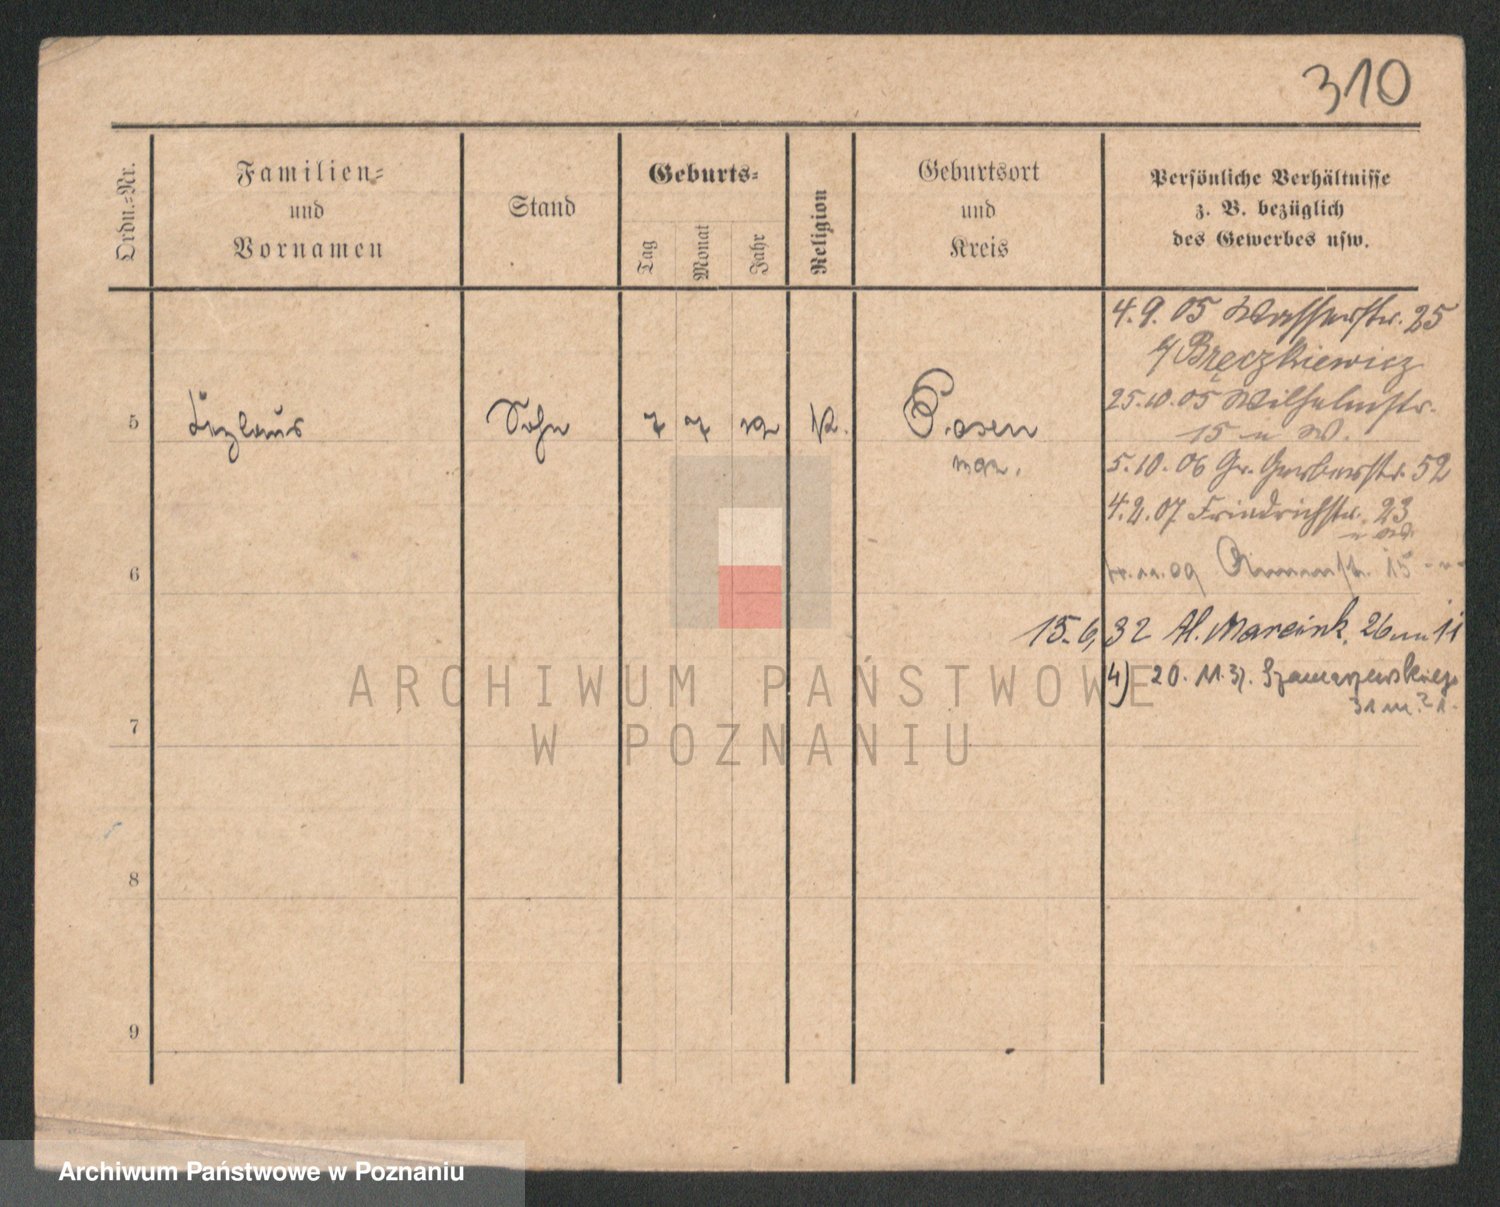 310
Ordn.-Nr.
Familien-
und
Vornamen
Stand
Geburts-
Tag
Monat
Jahr
Religion
Geburtsort
und
Kreis
Persönliche Verhältnisse
z. B. bezüglich
des Gewerbes usw.
4.9.05 Wasserstr. 25
b/ Bręczkiewicz
25.10.05 Wilhelmstr.
15
5 Sohn 7 7 12 k. Posen
5.10.06 Gr. Gerberstr. 52
4.2.07 Friedrichstr. 23
6
11.09 15
15.6.32 Al. Marcink. 26 m 11
4) 20.11.37. Szamarzewskiego
31 m. 21.
7
8
9
ARCHIWUM PAŃSTWOWE
W POZNANIU
Archiwum Państwowe w Poznaniu